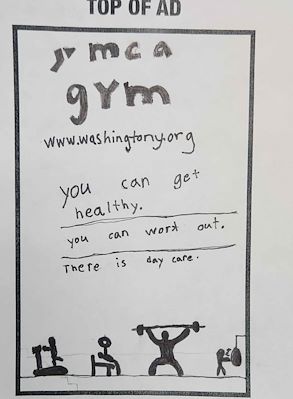 TOP OF AD
ymca
gym
www.washingtony.org
you can get
healthy.
you can work out.
There is day care.